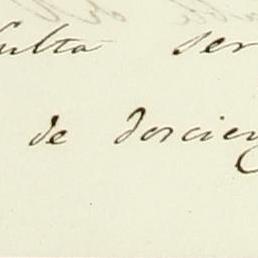 sulta ser
de dorcien